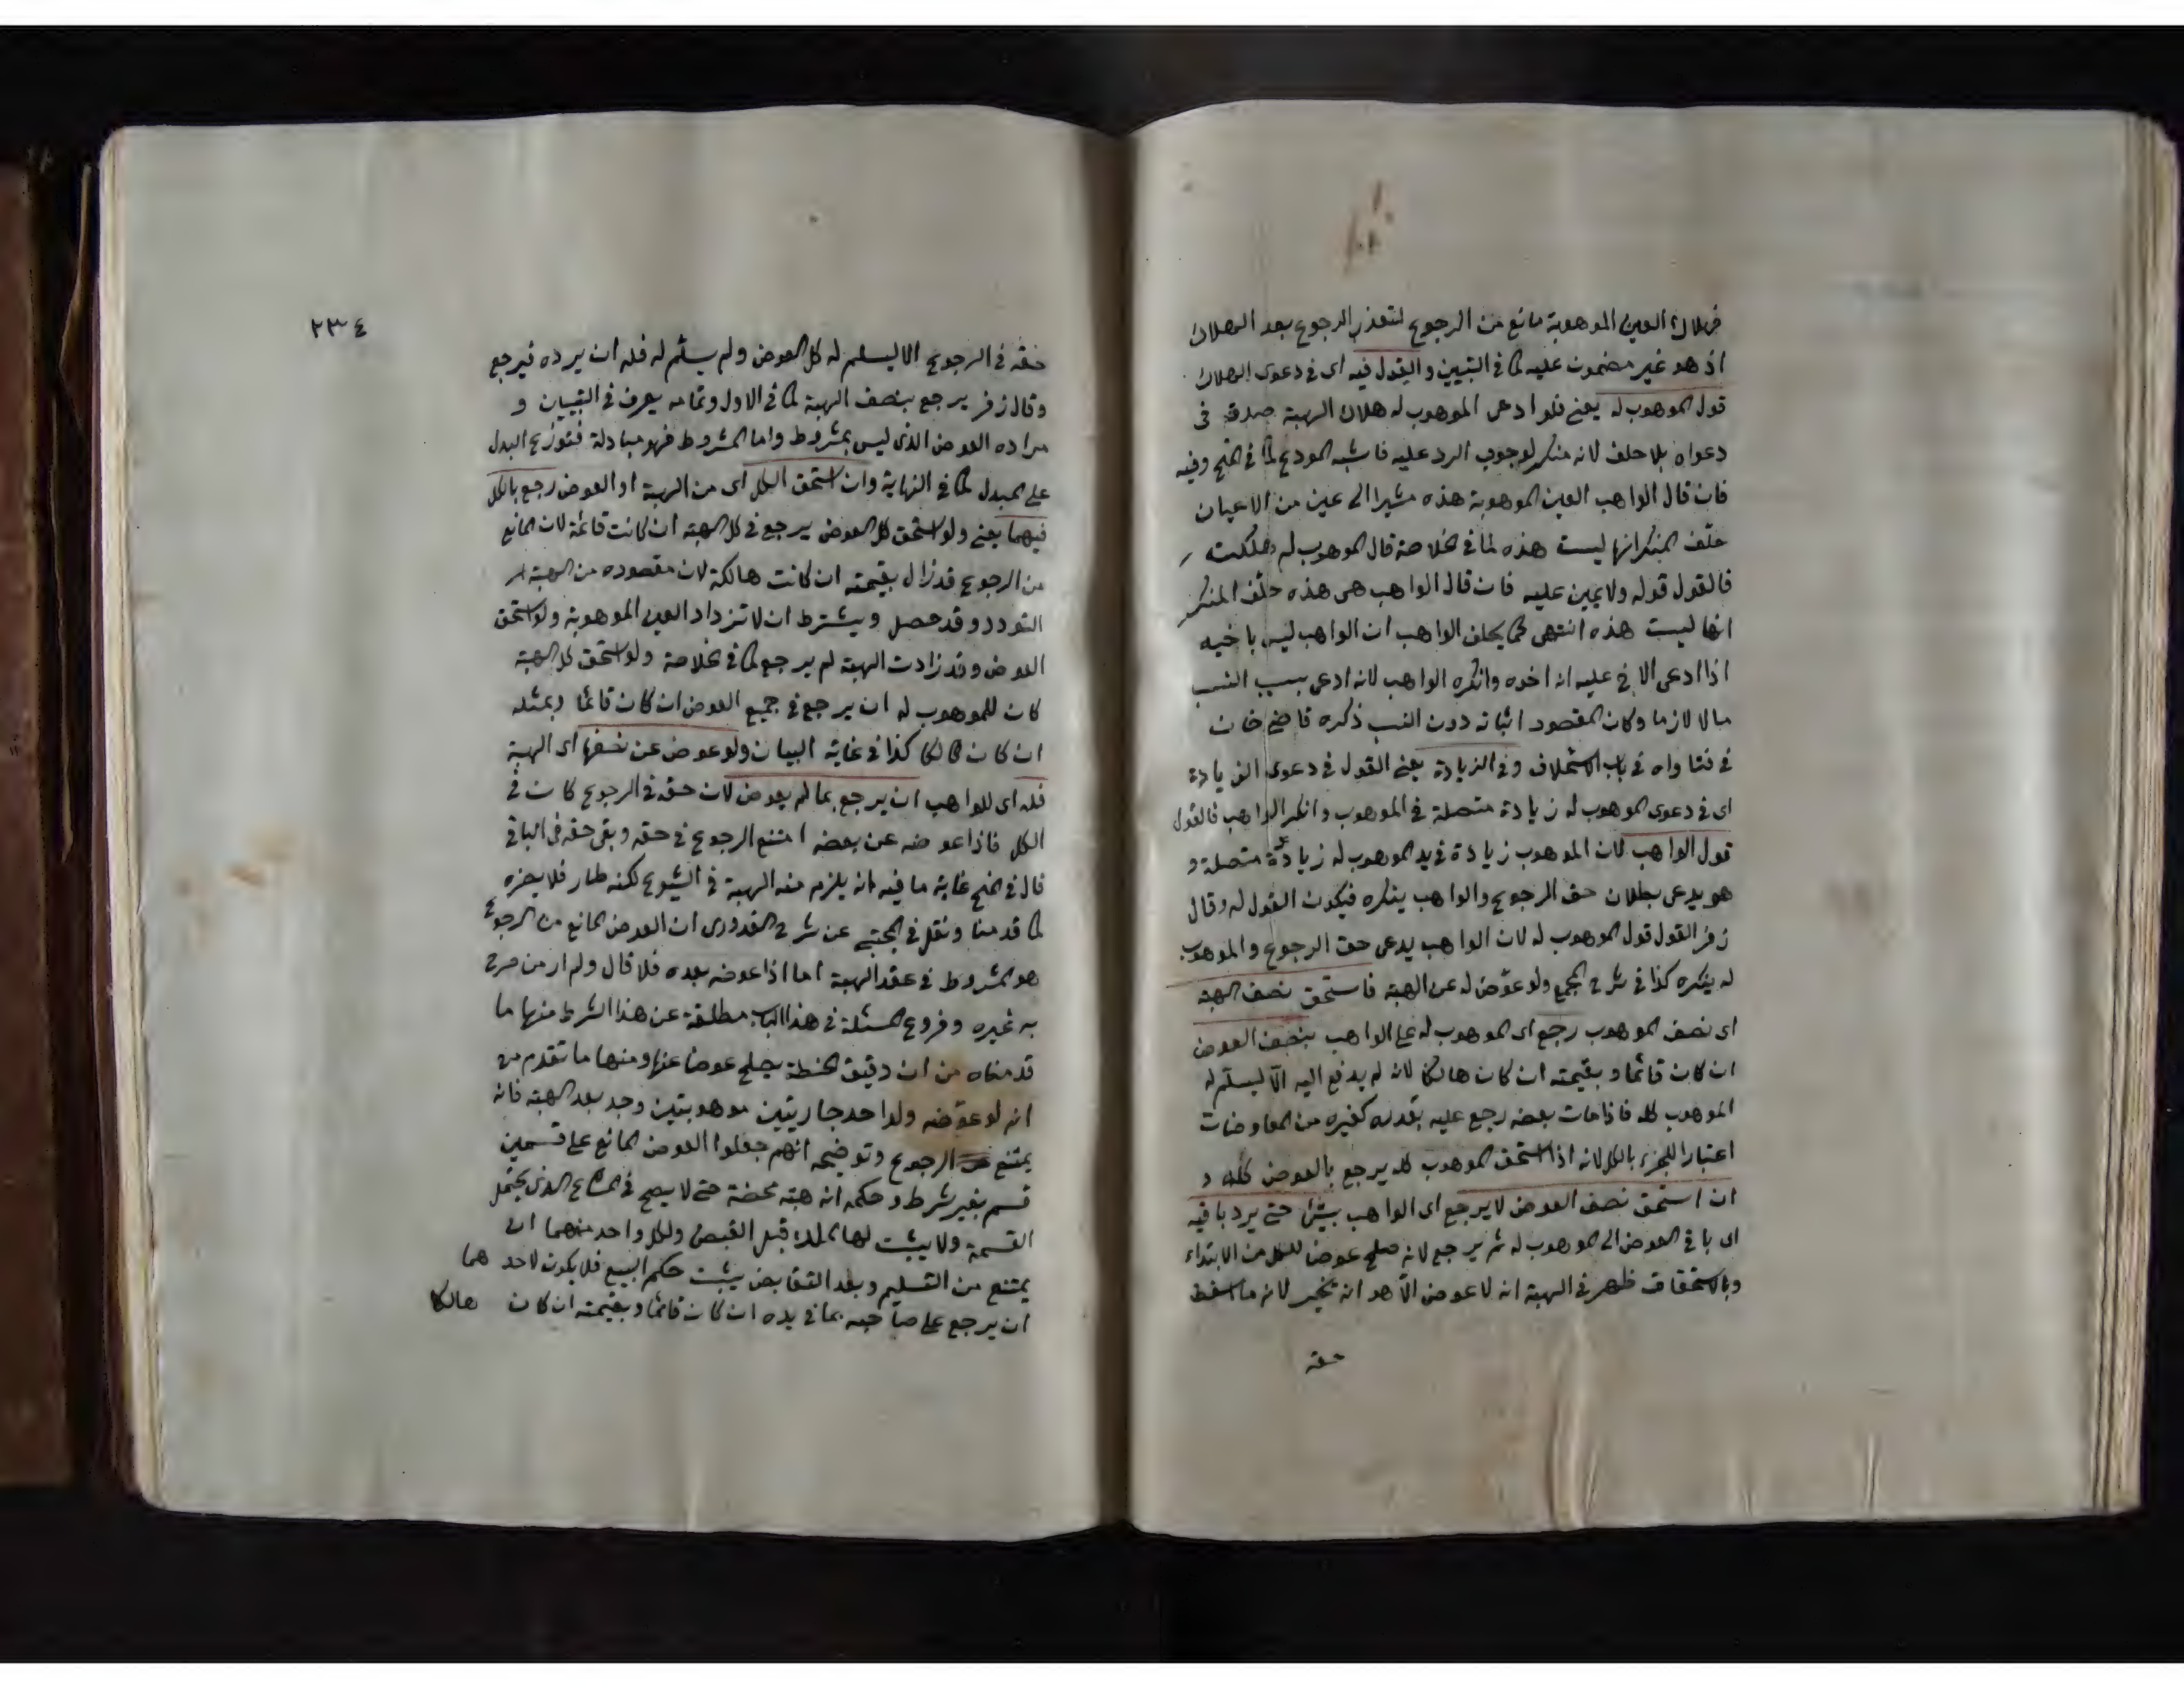 فهلاك العين الموهوبة مانع من الرجوع لتعذر الرجوع بعد الهلاك
اذ هو غير مضمون عليه كما في التبيين والقول فيه اى في دعوى الهلاك
قول الموهوب له يعنى فلو ادعى الموهوب له هلاك الهبة صدق فى
دعواه بلا حلف لانه منكر لوجوب الرد عليه فاشبه المودع كما في المنح وفيه
فان قال الواهب العين الموهوبة هذه مشيرا الى عين من الاعيان
حلّف المنكر انها ليست هذه كما في الخلاصة قال الموهوب له هلكت
فالقول قوله ولا يمين عليه فان قال الواهب هى هذه حلّف المنكر
انها ليست هذه انتهى كما يحلف الواهب ان الواهب ليس باخيه
اذا ادعى الاخ عليه انه اخوه وانكره الواهب لانه ادعى بسبب النسب
مالا لازما وكان المقصود اثباته دون النسب ذكره قاضى خان
في فتاواه في باب الاستحلاف وفي الزيادة يعنى القول في دعوى الزيادة
اى في دعوى الموهوب له زيادة متصلة في الموهوب وانكر الواهب فالقول
قول الواهب لان الموهوب زيادة في يد الموهوب له زيادة متصلة و
هو يدعى بطلان حق الرجوع والواهب ينكره فيكون القول له وقال
زفر القول قول الموهوب له لان الواهب يدعى حق الرجوع والموهوب
له ينكره كذا في شرح المجمع ولو عوّض له عن الهبة فاستحق نصف الهبة
اى نصف الموهوب رجع اى الموهوب له على الواهب بنصف العوض
ان كان قائما وبقيمته ان كان هالكا لانه لم يدفع اليه الّا ليسلّم له
الموهوب كله فاذا مات بعضه رجع عليه بقدره كغيره من المعاوضات
اعتبارا للجزء بالكل لانه اذا استحق الموهوب كله يرجع بالعوض كلّه و
ان استحق نصف العوض لا يرجع اى الواهب بشئ حتى يرد باقيه
اى باقي العوض الى الموهوب له ثم يرجع لانه صلح عوضا للكل من الابتداء
وبالاستحقاق ظهر في الهبة انه لا عوض الّا هو انه تخير لانه ما اسقط
حقه
٢٣٤
حقه في الرجوع الا ليسلم له كل العوض ولم يسلّم له فله ان يرده فيرجع
وقال زفر يرجع بنصف الهبة كما في الاول وتمامه يعرف في التبيان و
مراده العوض الذى ليس بمشروط واما المشروط فهو مبادلة فتوزع البدل
على المبدل كما في النهاية وان استحق الكل اى من الهبة او العوض رجع بالكل
فيهما يعنى ولو استحق كل العوض يرجع في كل الهبة ان كانت قائمة لان المانع
من الرجوع قد زال بقيمته ان كانت هالكة لان مقصوده من الهبة
التودد وقد حصل ويشترط ان لا تزداد العين الموهوبة ولو استحق
العوض وقد زادت الهبة لم يرجع كما في الخلاصة ولو استحق كل الهبة
كان للموهوب له ان يرجع في جميع العوض ان كان قائما وبمثله
ان كان هالكا كذا في غاية البيان ولو عوض عن نصفها اى الهبة
فله اى للواهب ان يرجع بما لم يعوض لان حقه في الرجوع كان في
الكل فاذا عوضه عن بعضه امتنع الرجوع في حقه وبقى حقه في الباقي
قال في المنح غاية ما فيه انه يلزم منه الهبة في الشيوع لكنه طار فلا يضره
كما قدمنا ونقل في المجتبى عن شرح القدورى ان العوض المانع من الرجوع
هو المشروط في عقد الهبة اما اذا عوضه بعده فلا قال ولم ار من صرح
به غيره وفروع المسئلة في هذا الباب مطلقة عن هذا الشرط منها ما
قدمناه من ان دقيق الحنطة يصلح عوضا عنها ومنها ما تقدم من
انه لو عوّضه ولد احد جاريتين موهوبتين وجد بعد الهبة فانه
يمتنع الرجوع وتوضيحه انهم جعلوا العوض المانع على قسمين
قسم بغير شرط وحكمه انه هبة محضة حتى لا يصح في المشاع الذى يحتمل
القسمة ولا يثبت لها الملك قبل القبض ولكل واحد منهما ان
يمتنع من التسليم وبعد التقابض يثبت حكم البيع فلا يكون لاحدهما
ان يرجع على صاحبه بما في يده ان كان قائما وبقيمته ان كان هالكا